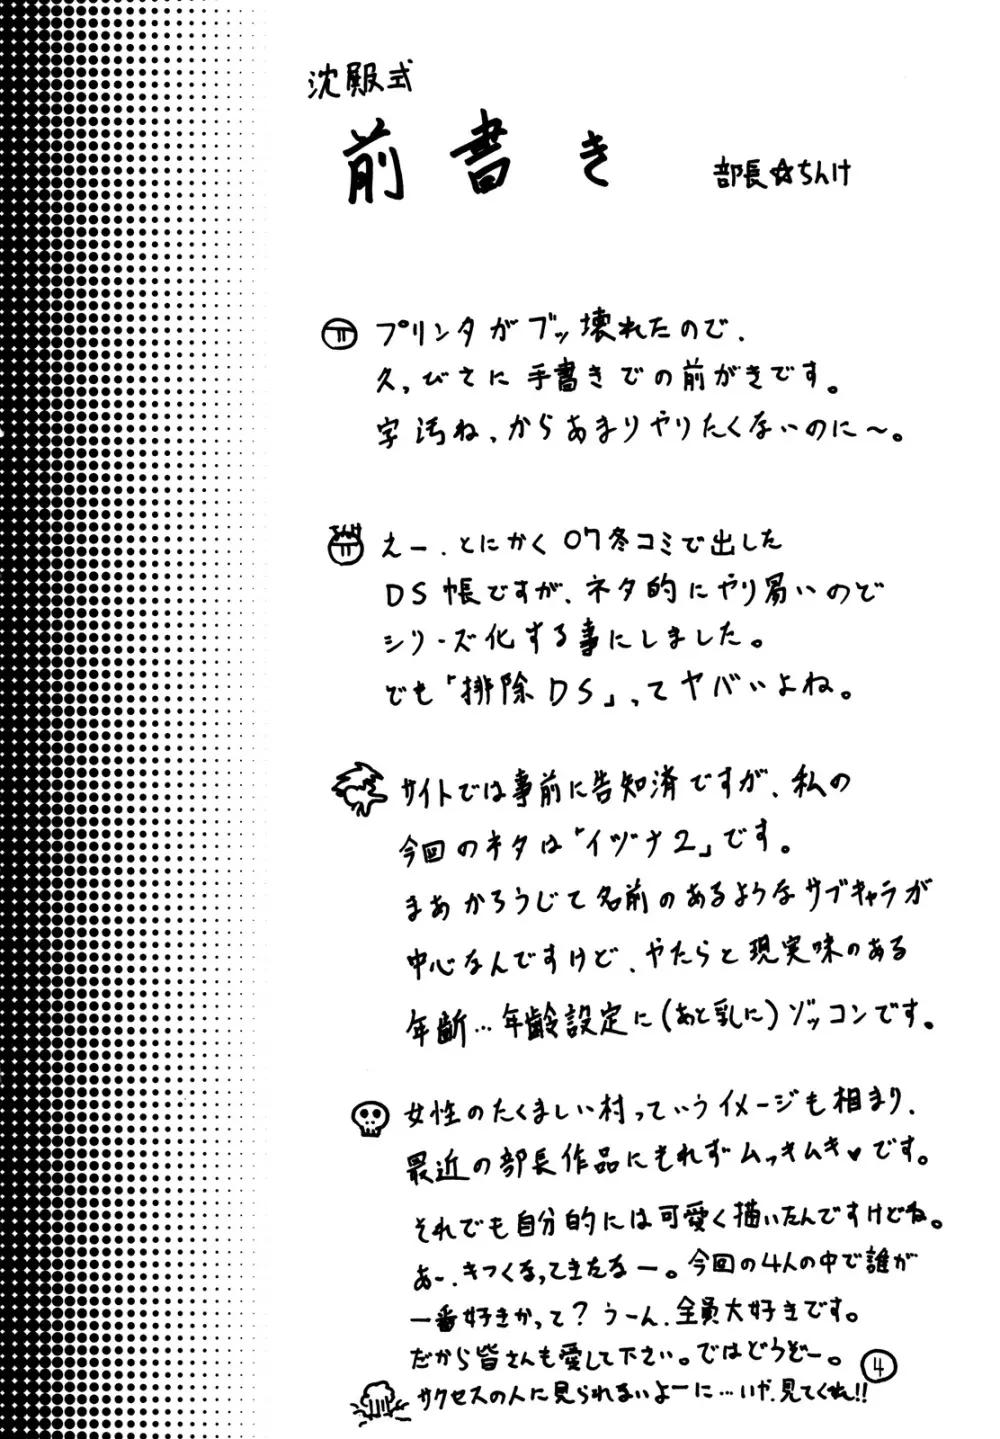 沈殿式
前書き
部長☆ちんけ
プリンタがブッ壊れたので、
久っびさに手書きでの前がきです。
字汚ねっからあまりやりたくないのに〜。
えー、とにかく07冬コミで出した
DS帳ですが、ネタ的にやり易いので
シリーズ化する事にしました。
でも「排除DS」ってヤバいよね。
サイトでは事前に告知済ですが、私の
今回のネタは「イヅナ2」です。
まあかろうじて名前のあるようなサブキャラが
中心なんですけど、やたらと現実味のある
年齢…年齢設定に(あと乳に)ゾッコンです。
女性のたくましい村っていうイメージも相まり、
最近の部長作品にもれずムっキムキ♥です。
それでも自分的には可愛く描いたんですけどね。
あー、きつくなってきたなー。今回の4人の中で誰が
一番好きかって?うーん、全員大好きです。
だから皆さんも愛して下さい。ではどうぞー。
4
サクセスの人に見られないよーに…いや、見てくれ!!